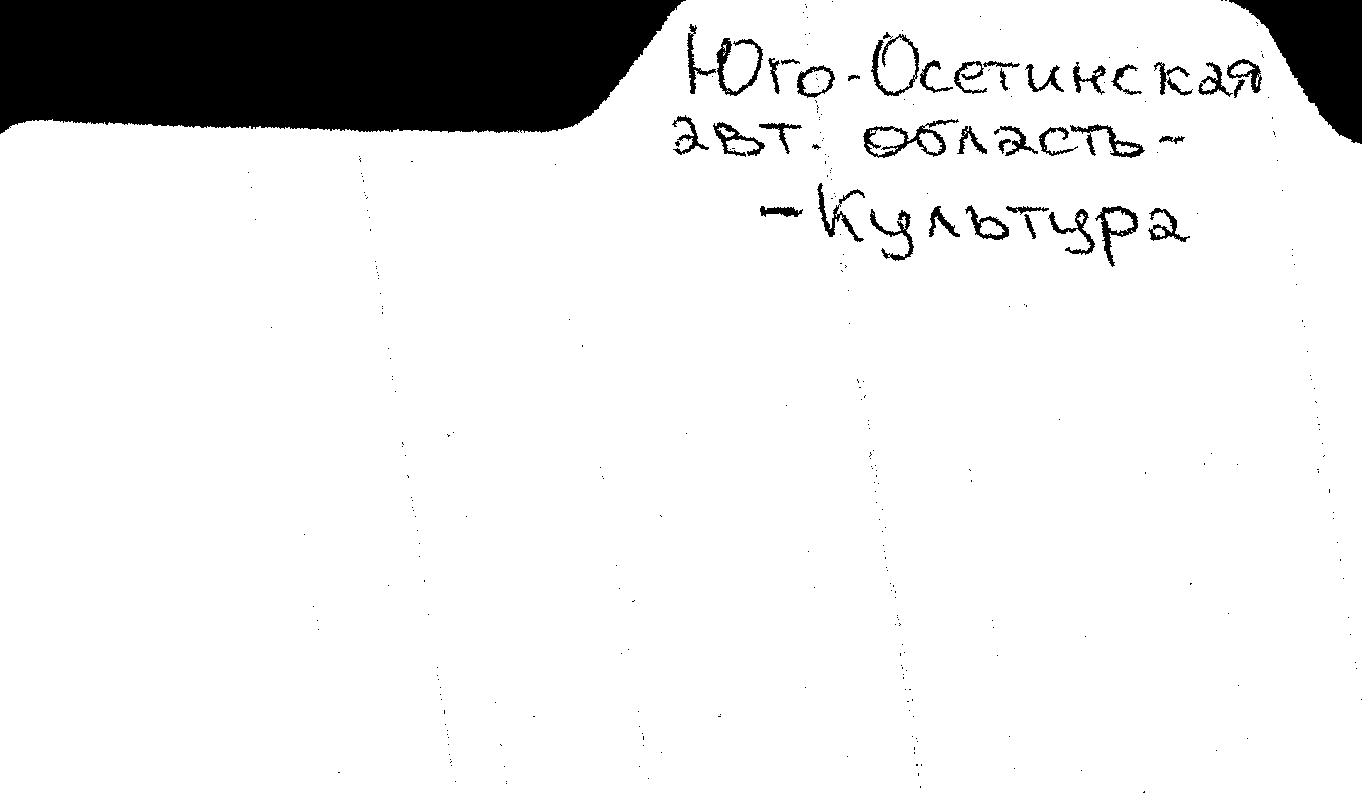 Юго-Осетинская
авт. область-
-Культура